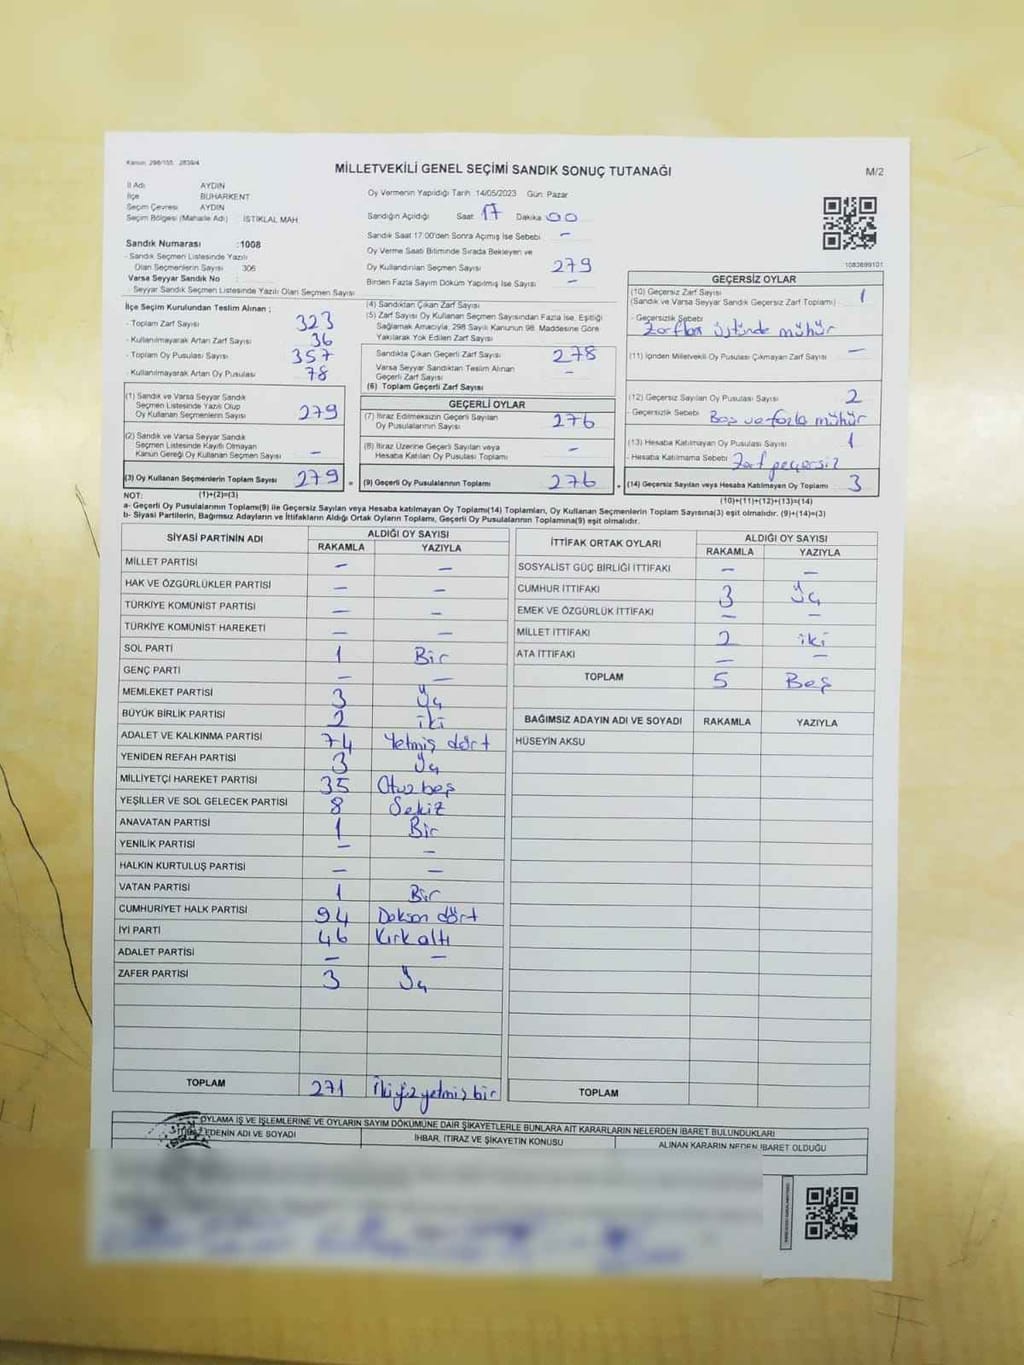 Kanun: 298/155 2839/4
MİLLETVEKİLİ GENEL SEÇİMİ SANDIK SONUÇ TUTANAĞI
M/2
İl Adı AYDIN
İlçe BUHARKENT
Seçim Çevresi AYDIN
Seçim Bölgesi (Mahalle Adı) İSTİKLAL MAH
Sandık Numarası :1008
- Sandık Seçmen Listesinde Yazılı
Olan Seçmenlerin Sayısı 306
Varsa Seyyar Sandık No :
- Seyyar Sandık Seçmen Listesinde Yazılı Olan Seçmen Sayısı
Oy Vermenin Yapıldığı Tarih 14/05/2023 Gün: Pazar
Sandığın Açıldığı Saat 17 Dakika 00
Sandık Saat 17.00'den Sonra Açılmış İse Sebebi –
Oy Verme Saati Bitiminde Sırada Bekleyen ve
Oy Kullandırılan Seçmen Sayısı 279
Birden Fazla Sayım Döküm Yapılmış İse Sayısı –
1083699101
İlçe Seçim Kurulundan Teslim Alınan ;
- Toplam Zarf Sayısı 323
- Kullanılmayarak Artan Zarf Sayısı 36
- Toplam Oy Pusulası Sayısı 357
- Kullanılmayarak Artan Oy Pusulası 78
(1) Sandık ve Varsa Seyyar Sandık
Seçmen Listesinde Yazılı Olup
Oy Kullanan Seçmenlerin Sayısı 279
(2) Sandık ve Varsa Seyyar Sandık
Seçmen Listesinde Kayıtlı Olmayan
Kanun Gereği Oy Kullanan Seçmen Sayısı –
(3) Oy Kullanan Seçmenlerin Toplam Sayısı 279 =
(1)+(2)=(3)
(4) Sandıktan Çıkan Zarf Sayısı
(5) Zarf Sayısı Oy Kullanan Seçmen Sayısından Fazla İse, Eşitliği
Sağlamak Amacıyla, 298 Sayılı Kanunun 98. Maddesine Göre
Yakılarak Yok Edilen Zarf Sayısı
Sandıkta Çıkan Geçerli Zarf Sayısı 278
Varsa Seyyar Sandıktan Teslim Alınan
Geçerli Zarf Sayısı –
(6) Toplam Geçerli Zarf Sayısı
GEÇERLİ OYLAR
(7) İtiraz Edilmeksizin Geçerli Sayılan
Oy Pusulalarının Sayısı 276
(8) İtiraz Üzerine Geçerli Sayılan veya
Hesaba Katılan Oy Pusulası Toplamı –
(9) Geçerli Oy Pusulalarının Toplamı 276 +
GEÇERSİZ OYLAR
(10) Geçersiz Zarf Sayısı 1
(Sandık ve Varsa Seyyar Sandık Geçersiz Zarf Toplamı)
- Geçersizlik Sebebi
Zarfların üstünde mühür
(11) İçinden Milletvekili Oy Pusulası Çıkmayan Zarf Sayısı –
(12) Geçersiz Sayılan Oy Pusulası Sayısı 2
- Geçersizlik Sebebi Boş ve fazla mühür
(13) Hesaba Katılmayan Oy Pusulası Sayısı 1
- Hesaba Katılmama Sebebi Zarf geçersiz
(14) Geçersiz Sayılan veya Hesaba Katılmayan Oy Toplamı 3
(10)+(11)+(12)+(13)=(14)
NOT:
a- Geçerli Oy Pusulalarının Toplamı(9) ile Geçersiz Sayılan veya Hesaba katılmayan Oy Toplamı(14) Toplamları, Oy Kullanan Seçmenlerin Toplam Sayısına(3) eşit olmalıdır. (9)+(14)=(3)
b- Siyasi Partilerin, Bağımsız Adayların ve İttifakların Aldığı Ortak Oyların Toplamı, Geçerli Oy Pusulalarının Toplamına(9) eşit olmalıdır.
SİYASİ PARTİNİN ADI ALDIĞI OY SAYISI
RAKAMLA YAZIYLA
MİLLET PARTİSİ – –
HAK VE ÖZGÜRLÜKLER PARTİSİ – –
TÜRKİYE KOMÜNİST PARTİSİ – –
TÜRKİYE KOMÜNİST HAREKETİ – –
SOL PARTİ 1 Bir
GENÇ PARTİ – –
MEMLEKET PARTİSİ 3 Üç
BÜYÜK BİRLİK PARTİSİ 2 iki
ADALET VE KALKINMA PARTİSİ 74 Yetmiş dört
YENİDEN REFAH PARTİSİ 3 Üç
MİLLİYETÇİ HAREKET PARTİSİ 35 Otuz beş
YEŞİLLER VE SOL GELECEK PARTİSİ 8 Sekiz
ANAVATAN PARTİSİ 1 Bir
YENİLİK PARTİSİ – –
HALKIN KURTULUŞ PARTİSİ – –
VATAN PARTİSİ 1 Bir
CUMHURİYET HALK PARTİSİ 94 Doksan dört
İYİ PARTİ 46 Kırk altı
ADALET PARTİSİ – –
ZAFER PARTİSİ 3 Üç
TOPLAM 271 İkiyüzyetmişbir
İTTİFAK ORTAK OYLARI ALDIĞI OY SAYISI
RAKAMLA YAZIYLA
SOSYALİST GÜÇ BİRLİĞİ İTTİFAKI – –
CUMHUR İTTİFAKI 3 Üç
EMEK VE ÖZGÜRLÜK İTTİFAKI – –
MİLLET İTTİFAKI 2 iki
ATA İTTİFAKI – –
TOPLAM 5 Beş
BAĞIMSIZ ADAYIN ADI VE SOYADI RAKAMLA YAZIYLA
HÜSEYİN AKSU
TOPLAM
OYLAMA İŞ VE İŞLEMLERİNE VE OYLARIN SAYIM DÖKÜMÜNE DAİR ŞİKAYETLERLE BUNLARA AİT KARARLARIN NELERDEN İBARET BULUNDUKLARI
EDENİN ADI VE SOYADI İHBAR, İTİRAZ VE ŞİKAYETİN KONUSU ALINAN KARARIN NEDEN İBARET OLDUĞU